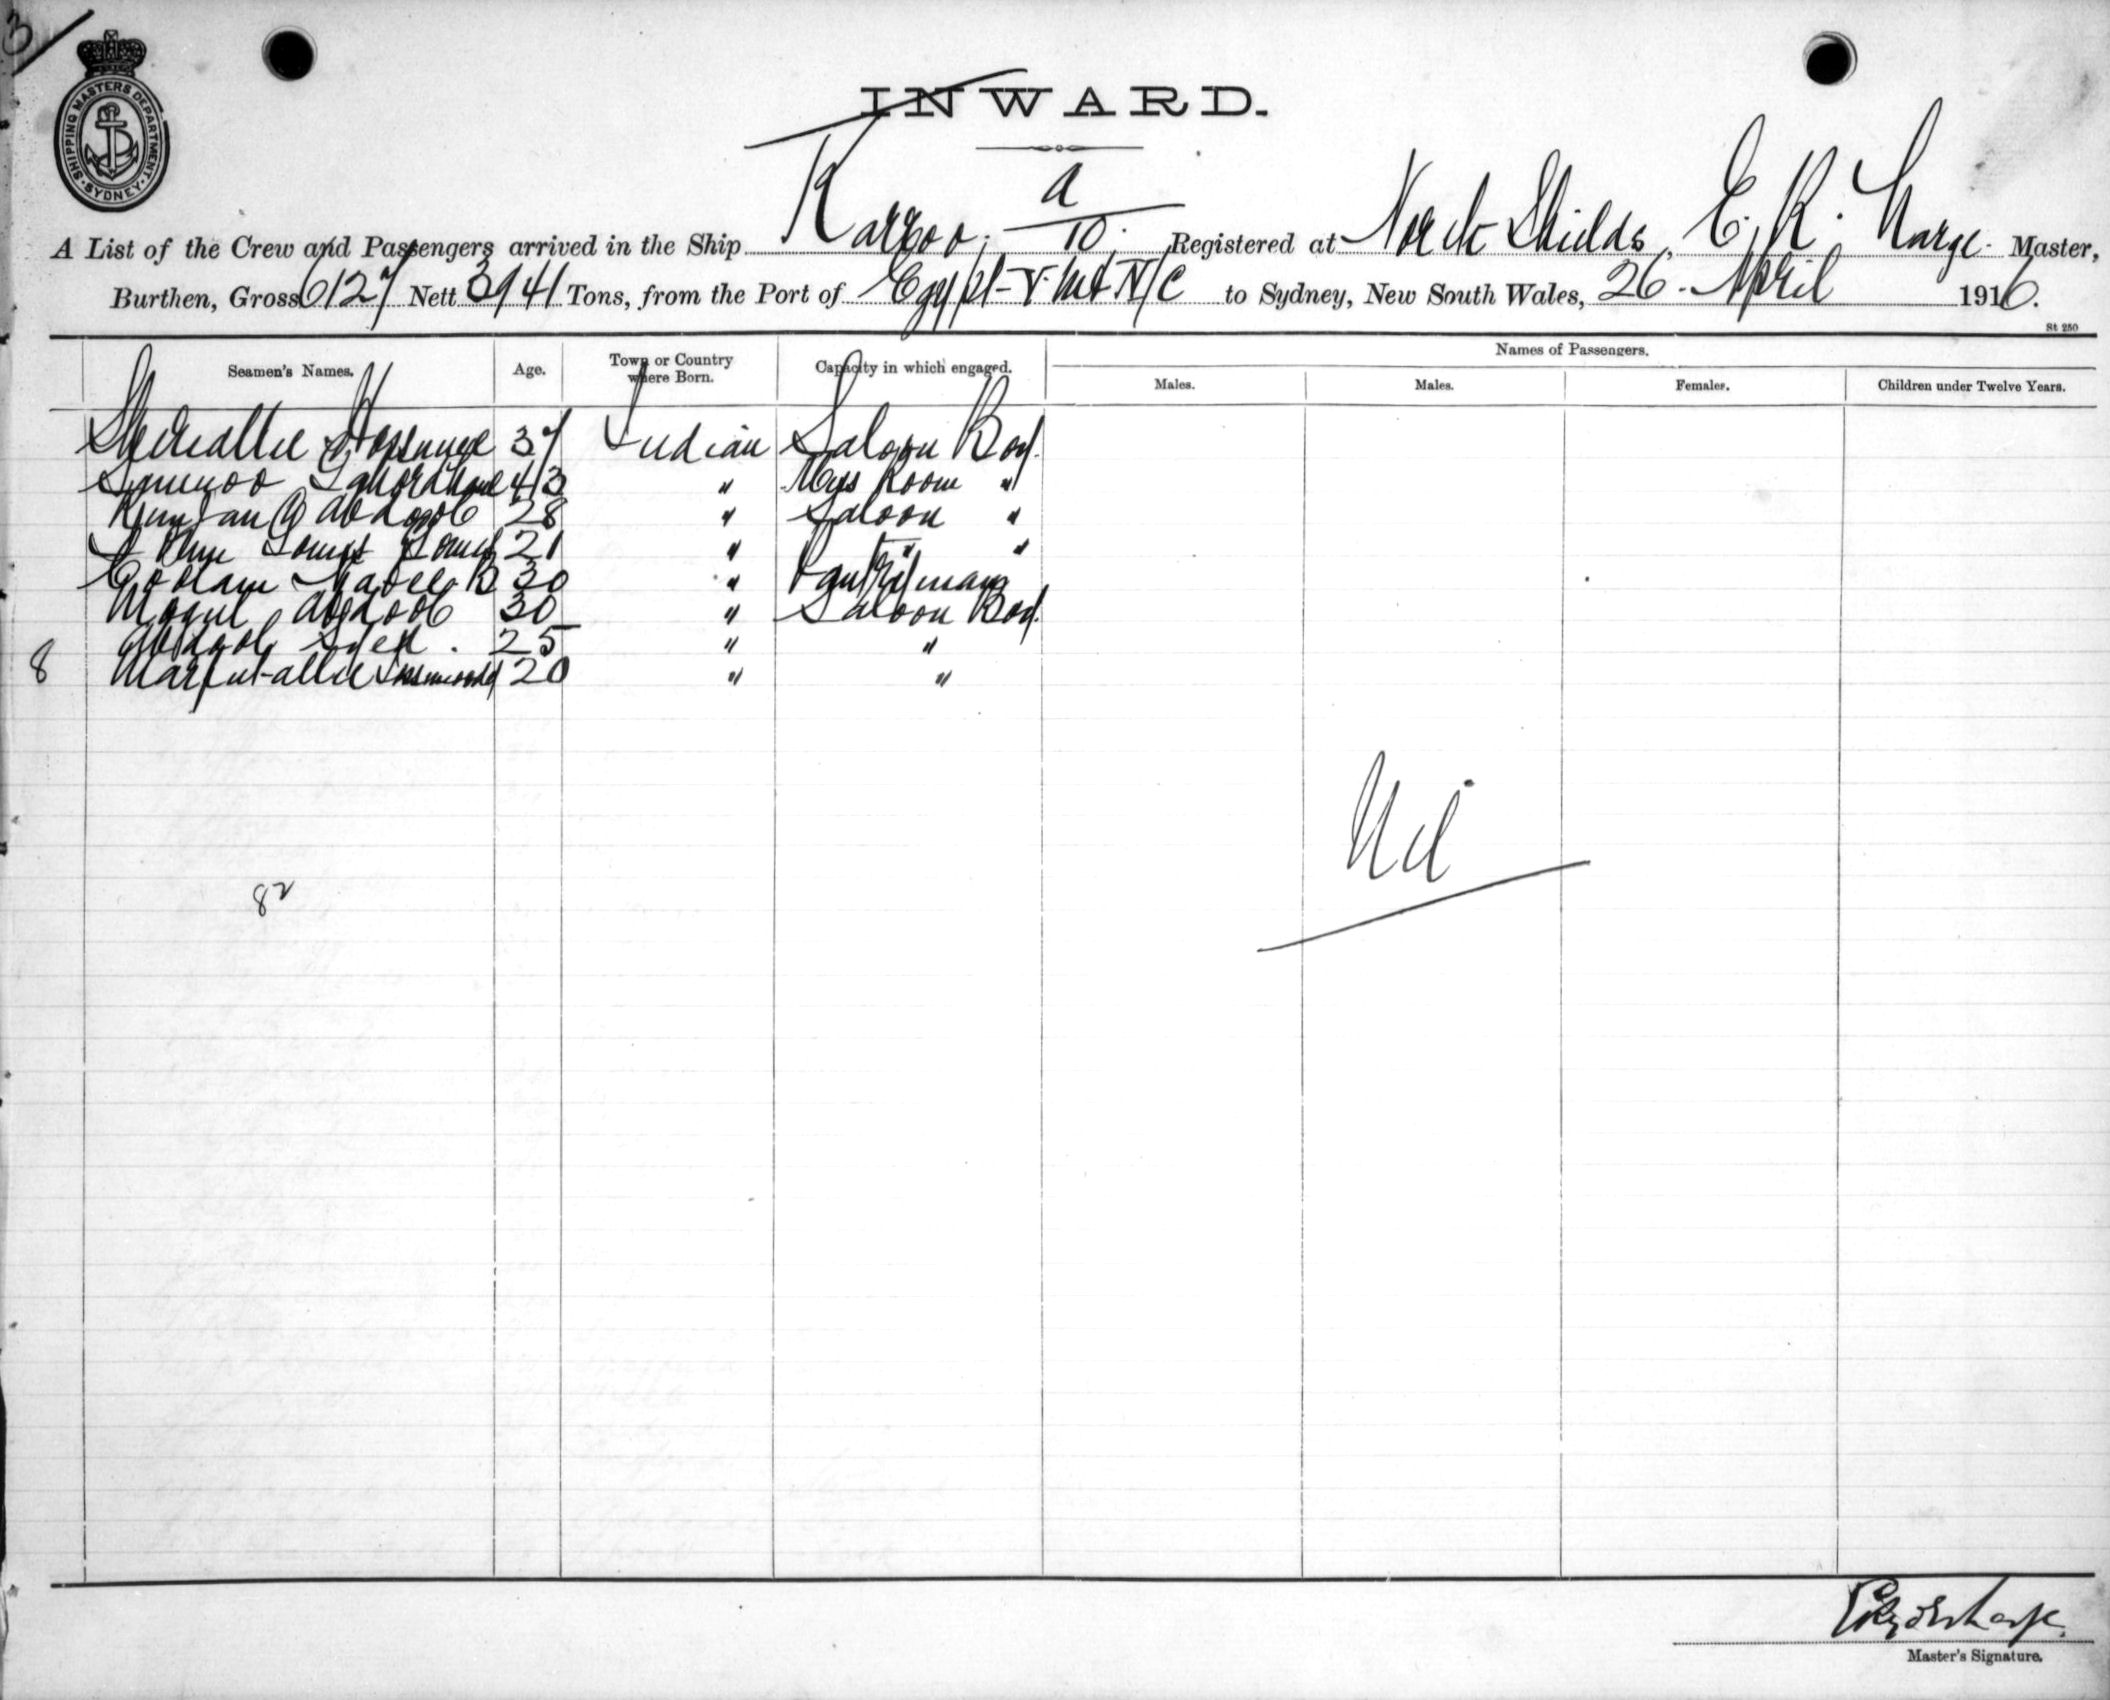 3
SHIPPING MASTERS DEPARTMENT. SYDNEY.
INWARD.
A List of the Crew and Passengers arrived in the Ship Karroo. A/10. Registered at North Shields, E. R. Master,
Burthen, Gross 6127 Nett 3941 Tons, from the Port of Egypt to Sydney, New South Wales, 26 April 1916.
St 250
Seamen's Names. Age. Town or Country where Born. Capacity in which engaged. Names of Passengers.
Males. Males. Females. Children under Twelve Years.
37 Indian Saloon Boy.
43 " Mess Room "
Abdool 28 " Saloon "
21 " " "
Goolam 30 " Pantryman
Mogul Abdool 30 " Saloon Boy.
Abdool Syed. 25 " "
8 20 " "
Nil
82
Master's Signature.